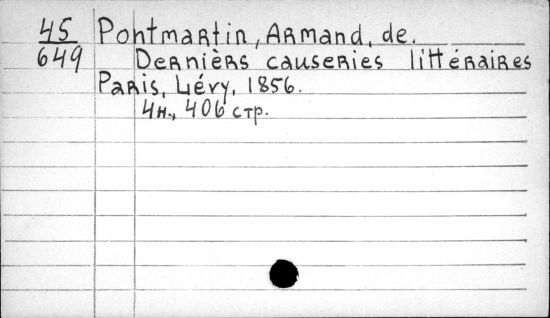 45 Pontmartin, Armand, de.
649 Dernièrs causeries littéraires
Paris, Lévy, 1856.
4н., 406 стр.